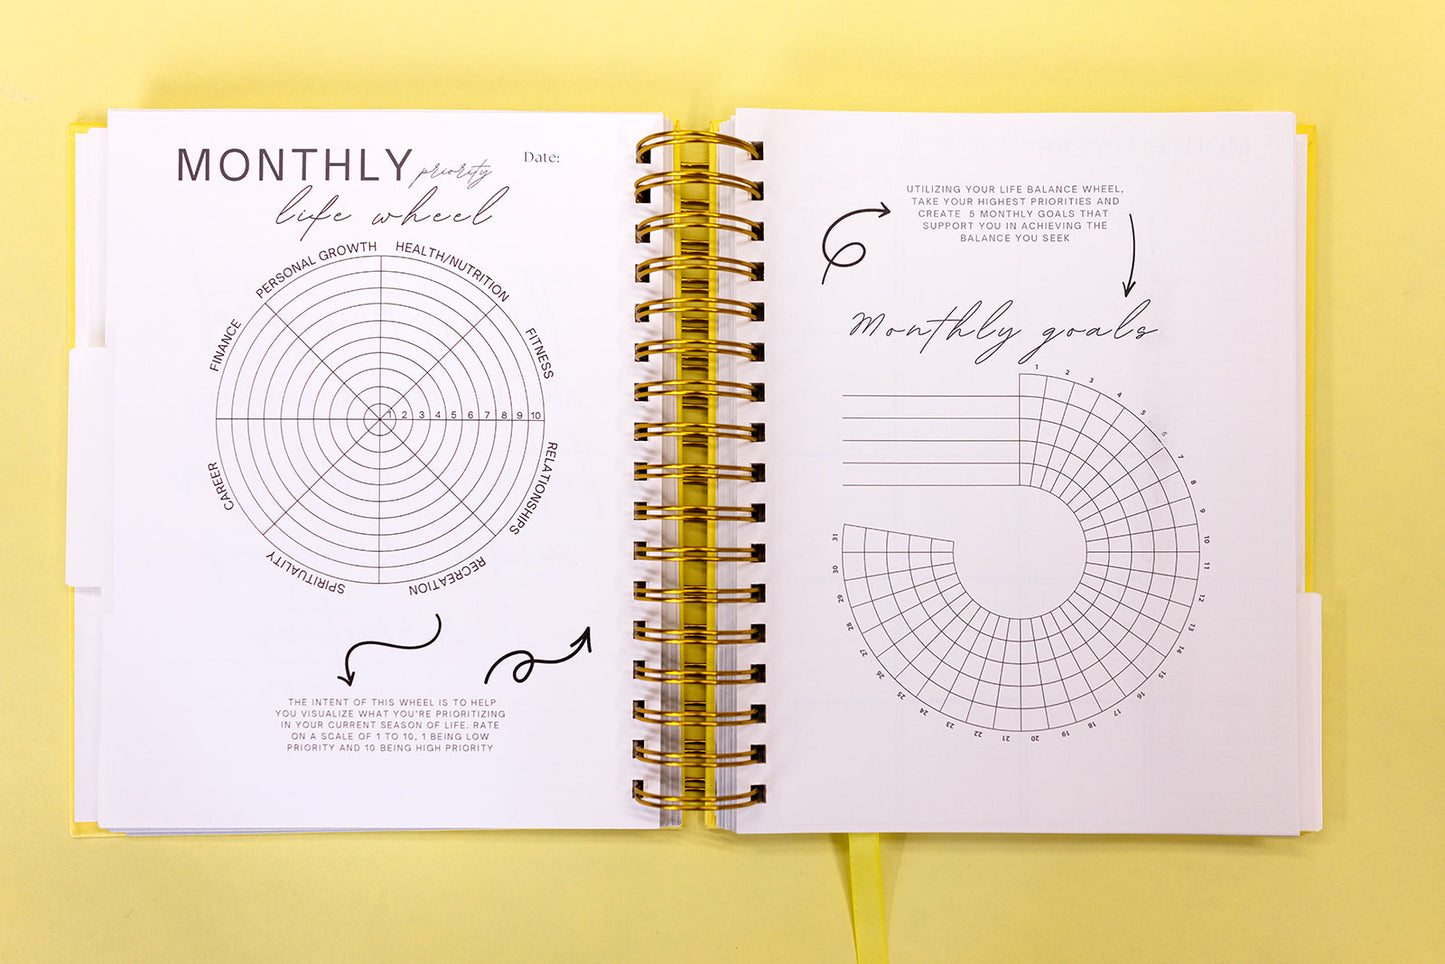 MONTHLY priority
Date:
life wheel
PERSONAL GROWTH
HEALTH/NUTRITION
FINANCE
FITNESS
1 2 3 4 5 6 7 8 9 10
CAREER
RELATIONSHIPS
SPIRITUALITY
RECREATION
THE INTENT OF THIS WHEEL IS TO HELP
YOU VISUALIZE WHAT YOU'RE PRIORITIZING
IN YOUR CURRENT SEASON OF LIFE. RATE
ON A SCALE OF 1 TO 10, 1 BEING LOW
PRIORITY AND 10 BEING HIGH PRIORITY
UTILIZING YOUR LIFE BALANCE WHEEL,
TAKE YOUR HIGHEST PRIORITIES AND
CREATE 5 MONTHLY GOALS THAT
SUPPORT YOU IN ACHIEVING THE
BALANCE YOU SEEK
Monthly goals
1 2 3 4 5 6 7 8 9 10 11 12 13 14 15 16 17 18 19 20 21 22 23 24 25 26 27 28 29 30 31